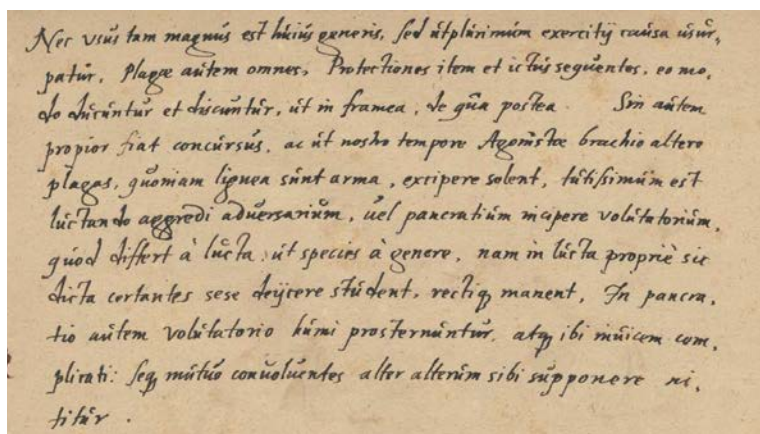 Nec usus tam magnus est huius generis, sed utplurimum exercitij causa usur,
patur, Plagæ autem omnes, Protectiones item et ictus sequentes, eo mo,
do dicuntur et discuntur, ut in framea, de qua postea. Sin autem
propior fiat concursus, ac ut nostro tempore Agonistæ brachio altero
plagas, quoniam lignea sunt arma, excipere solent, tutissimum est
luctando aggredi adversarium, uel pancratium incipere volutatorium,
quod differt à lucta, ut species à genere, nam in lucta propriè sic
dicta certantes sese deijcere student, rectiq manent, In pancra,
tio autem volutatorio humi prosternuntur, atq ibi inuicem com,
plicati: seq mutuo conuoluentes alter alterum sibi supponere ni,
titur.